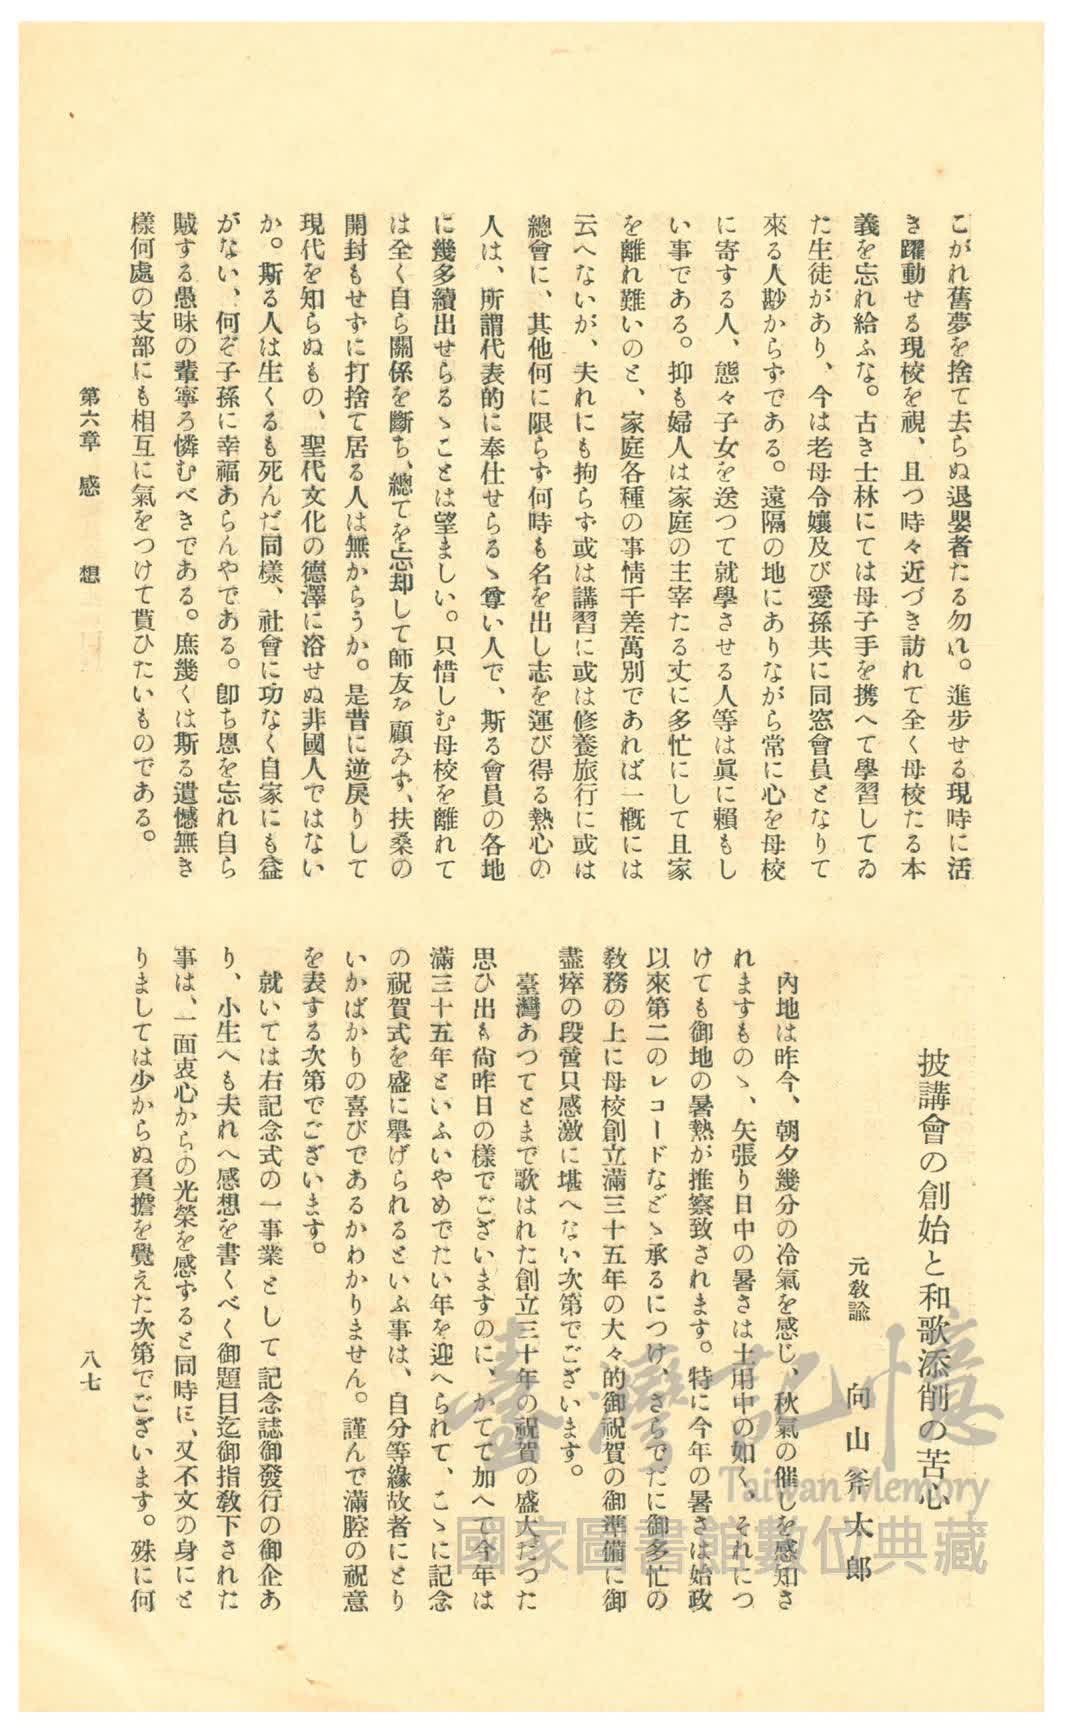 こがれ舊夢を捨て去らぬ退嬰者たる勿れ。進步せる現時に活
き躍動せる現校を視、且つ時々近づき訪れて全く母校たる本
義を忘れ給ふな。古き士林にては母子手を携へて學習してゐ
た生徒があり、今は老母令孃及び愛孫共に同窓會員となりて
來る人尠からずである。遠隔の地にありながら常に心を母校
に寄する人、態々子女を送つて就學させる人等は眞に賴もし
い事である。抑も婦人は家庭の主宰たる丈に多忙にして且家
を離れ難いのと、家庭各種の事情千差萬別であれば一槪には
云へないが、夫れにも拘らず或は講習に或は修養旅行に或は
總會に、其他何に限らず何時も名を出し志を運び得る熱心の
人は、所謂代表的に奉仕せらるゝ尊い人で、斯る會員の各地
に幾多續出せらるゝことは望ましい。只惜しむ母校を離れて
は全く自ら關係を斷ち、總てを忘却して師友を顧みず、扶桑の
開封もせずに打捨て居る人は無からうか。是昔に逆戾りして
現代を知らぬもの、聖代文化の德澤に浴せぬ非國人ではない
か。斯る人は生くるも死んだ同樣、社會に功なく自家にも益
がない、何ぞ子孫に幸福あらんやである。卽ち恩を忘れ自ら
賊する愚昧の輩寧ろ憐むべきである。庶幾くは斯る遺憾無き
樣何處の支部にも相互に氣をつけて貰ひたいものである。
披講會の創始と和歌添削の苦心
元敎諭 向山斧太郞
內地は昨今、朝夕幾分の冷氣を感じ、秋氣の催しを感知さ
れますものゝ、矢張り日中の暑さは土用中の如く。それにつ
けても御地の暑熱が推察致されます。特に今年の暑さは始政
以來第二のレコードなどゝ承るにつけ、さらでだに御多忙の
敎務の上に母校創立滿三十五年の大々的御祝賀の御準備に御
盡瘁の段啻只感激に堪へない次第でございます。
臺灣あつてとまで歌はれた創立三十年の祝賀の盛大だつた
思ひ出も尙昨日の樣でございますのに、かてて加へて今年は
滿三十五年といふいやめでたい年を迎へられて、こゝに記念
の祝賀式を盛に擧げられるといふ事は、自分等緣故者にとり
いかばかりの喜びであるかわかりません。謹んで滿腔の祝意
を表する次第でございます。
就いては右記念式の一事業として記念誌御發行の御企あ
り、小生へも夫れへ感想を書くべく御題目迄御指敎下された
事は、一面衷心からの光榮を感ずると同時に、又不文の身にと
りましては少からぬ負擔を覺えた次第でございます。殊に何
第六章 感想
八七
臺灣記憶
Taiwan Memory
國家圖書館數位典藏